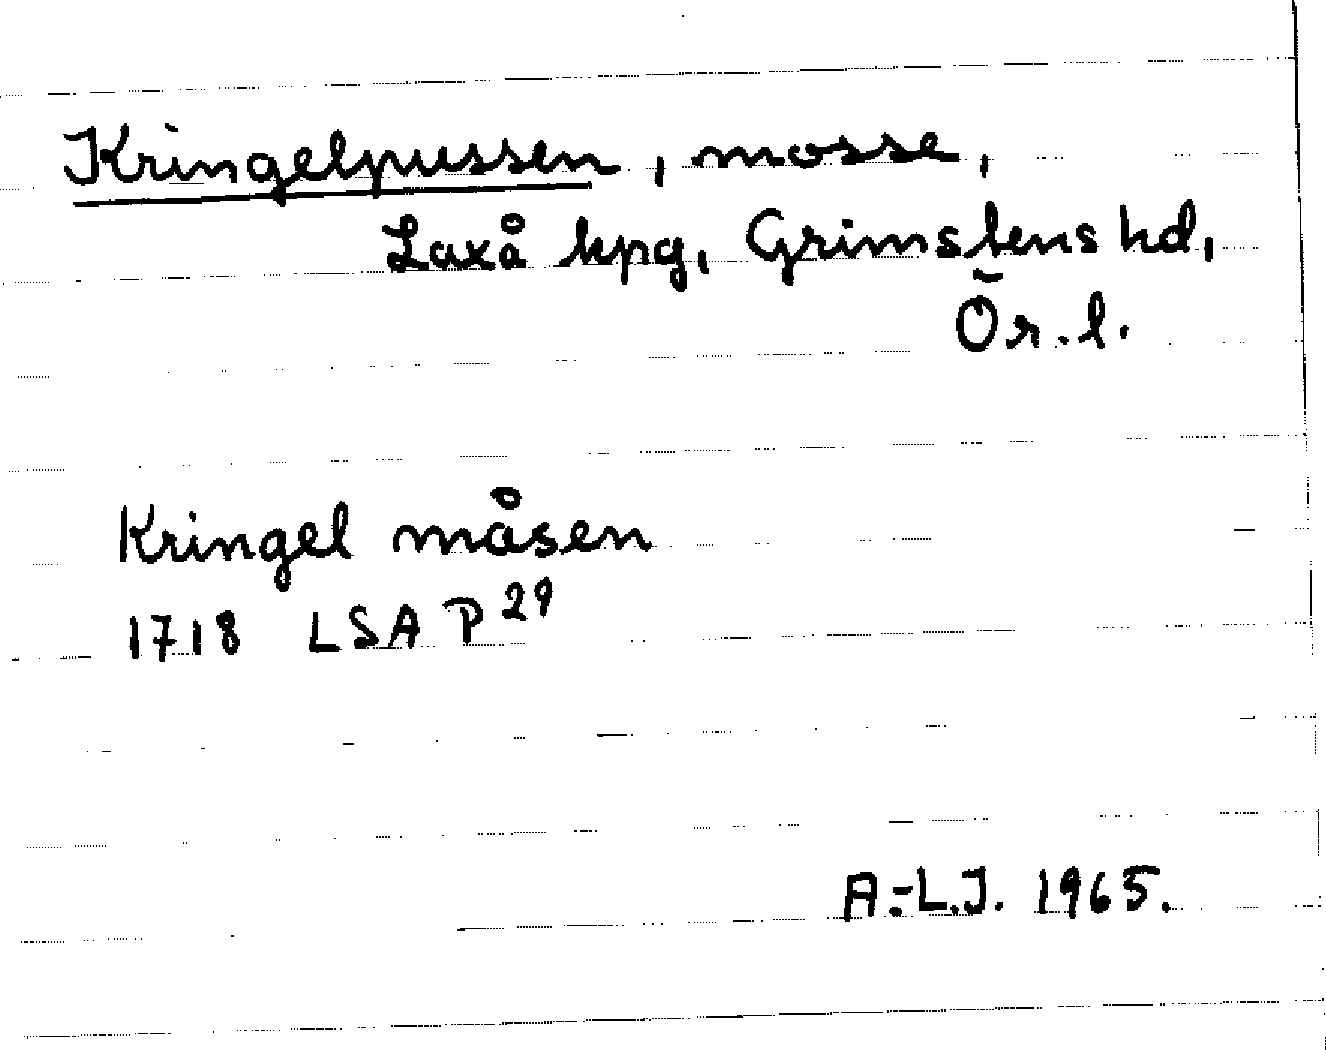 Kringelpussen, mosse,
Laxå kpg, Grimstens hd,
Ör. l.
Kringel måsen
1718 LSA P 29
A.-L.J. 1965.